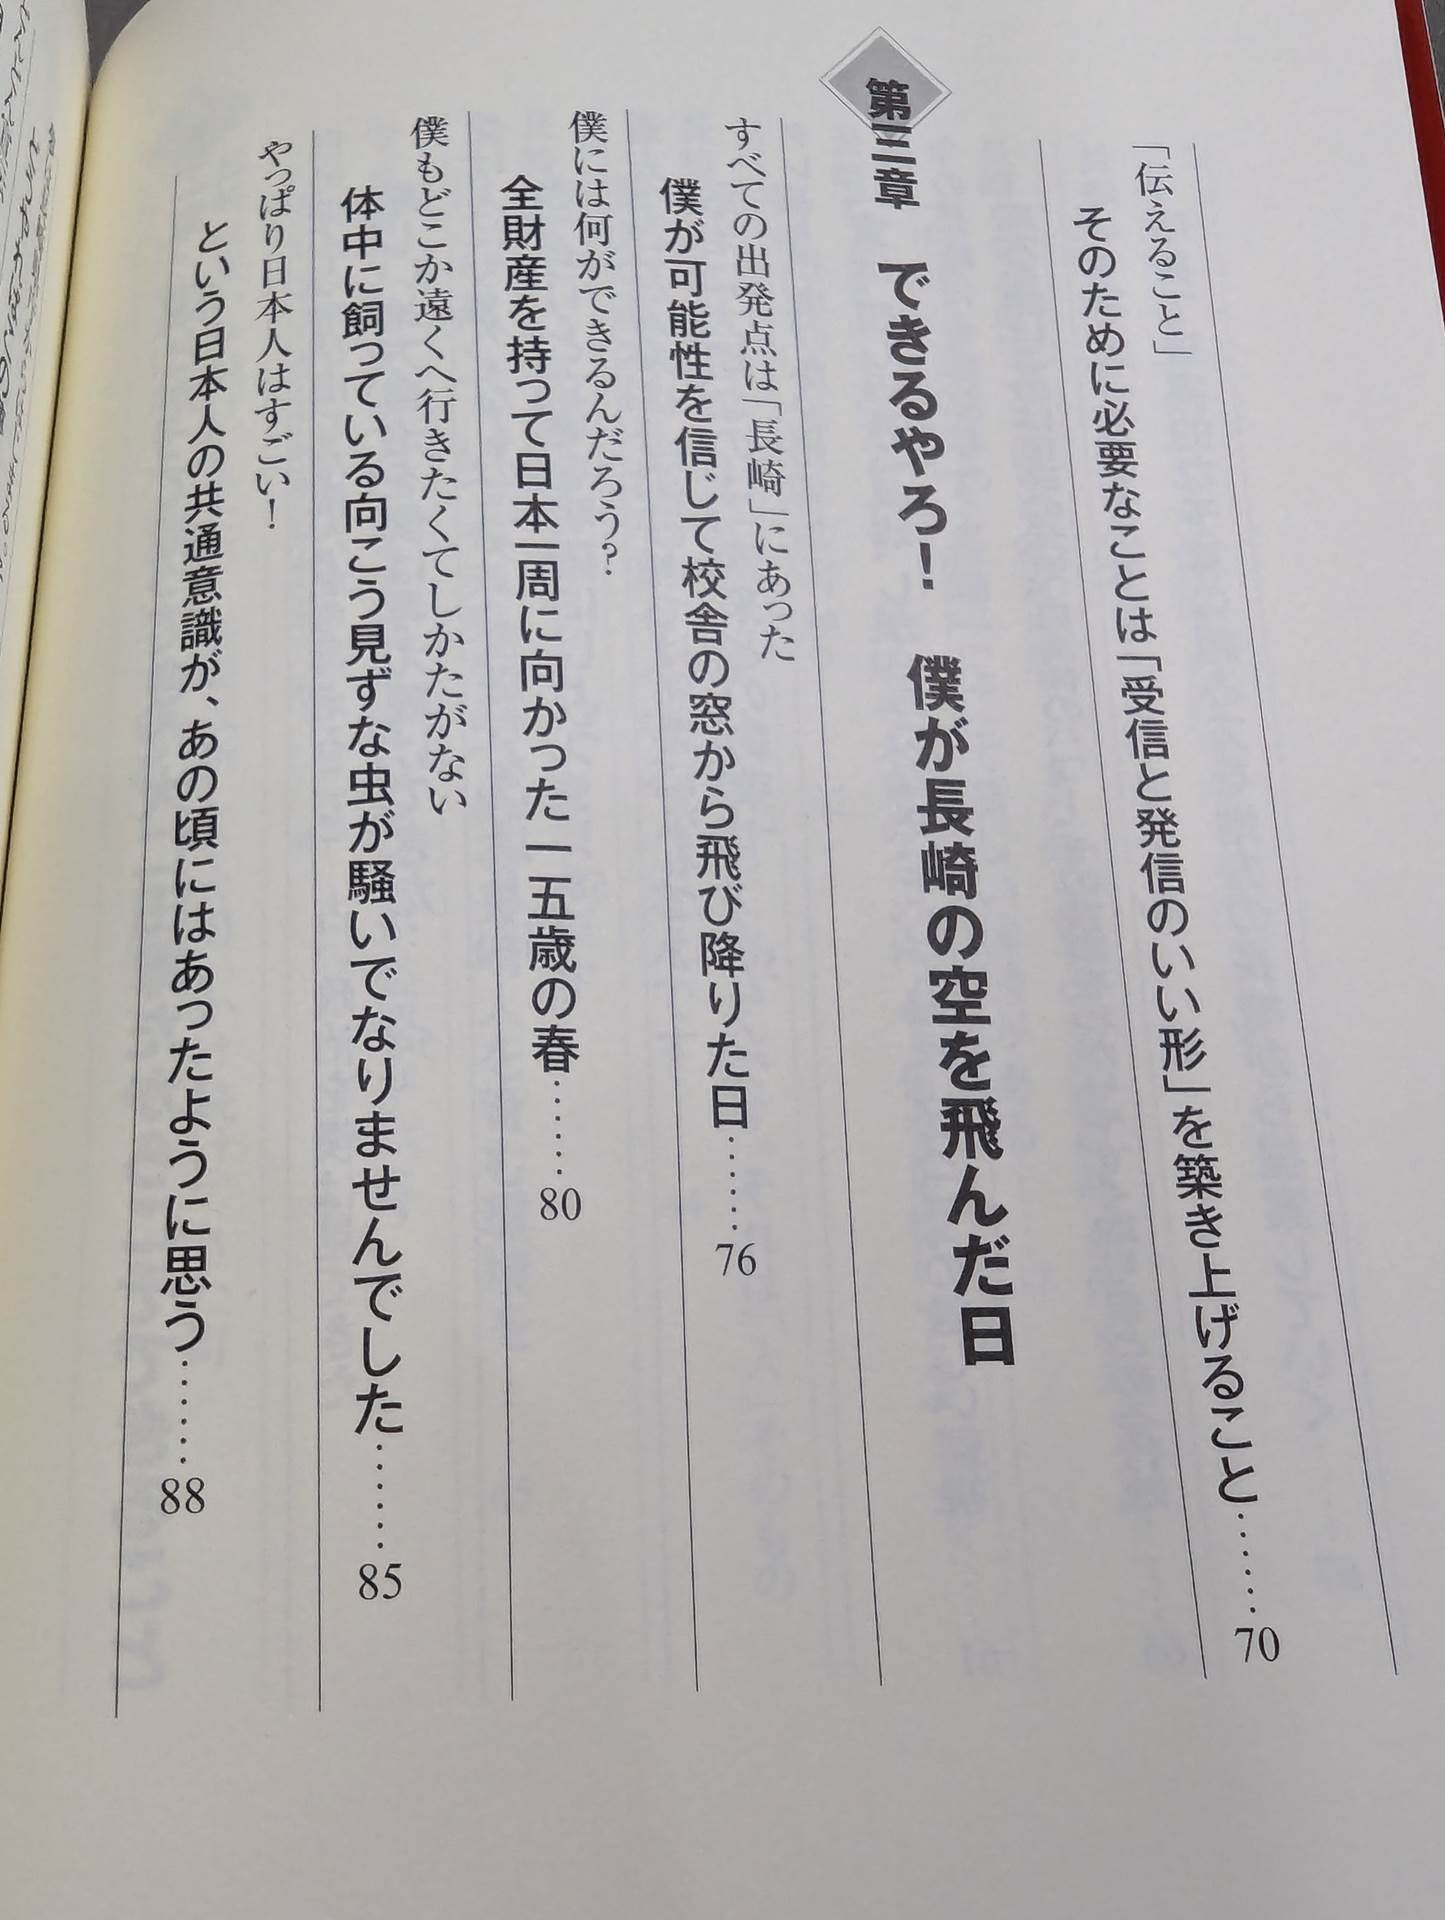 「伝えること」
そのために必要なことは「受信と発信のいい形」を築き上げること……70
第三章　できるやろ！　僕が長崎の空を飛んだ日
すべての出発点は「長崎」にあった
僕が可能性を信じて校舎の窓から飛び降りた日……76
僕には何ができるんだろう？
全財産を持って日本一周に向かった一五歳の春……80
僕もどこか遠くへ行きたくてしかたがない
体中に飼っている向こう見ずな虫が騒いでなりませんでした……85
やっぱり日本人はすごい！
という日本人の共通意識が、あの頃にはあったように思う……88